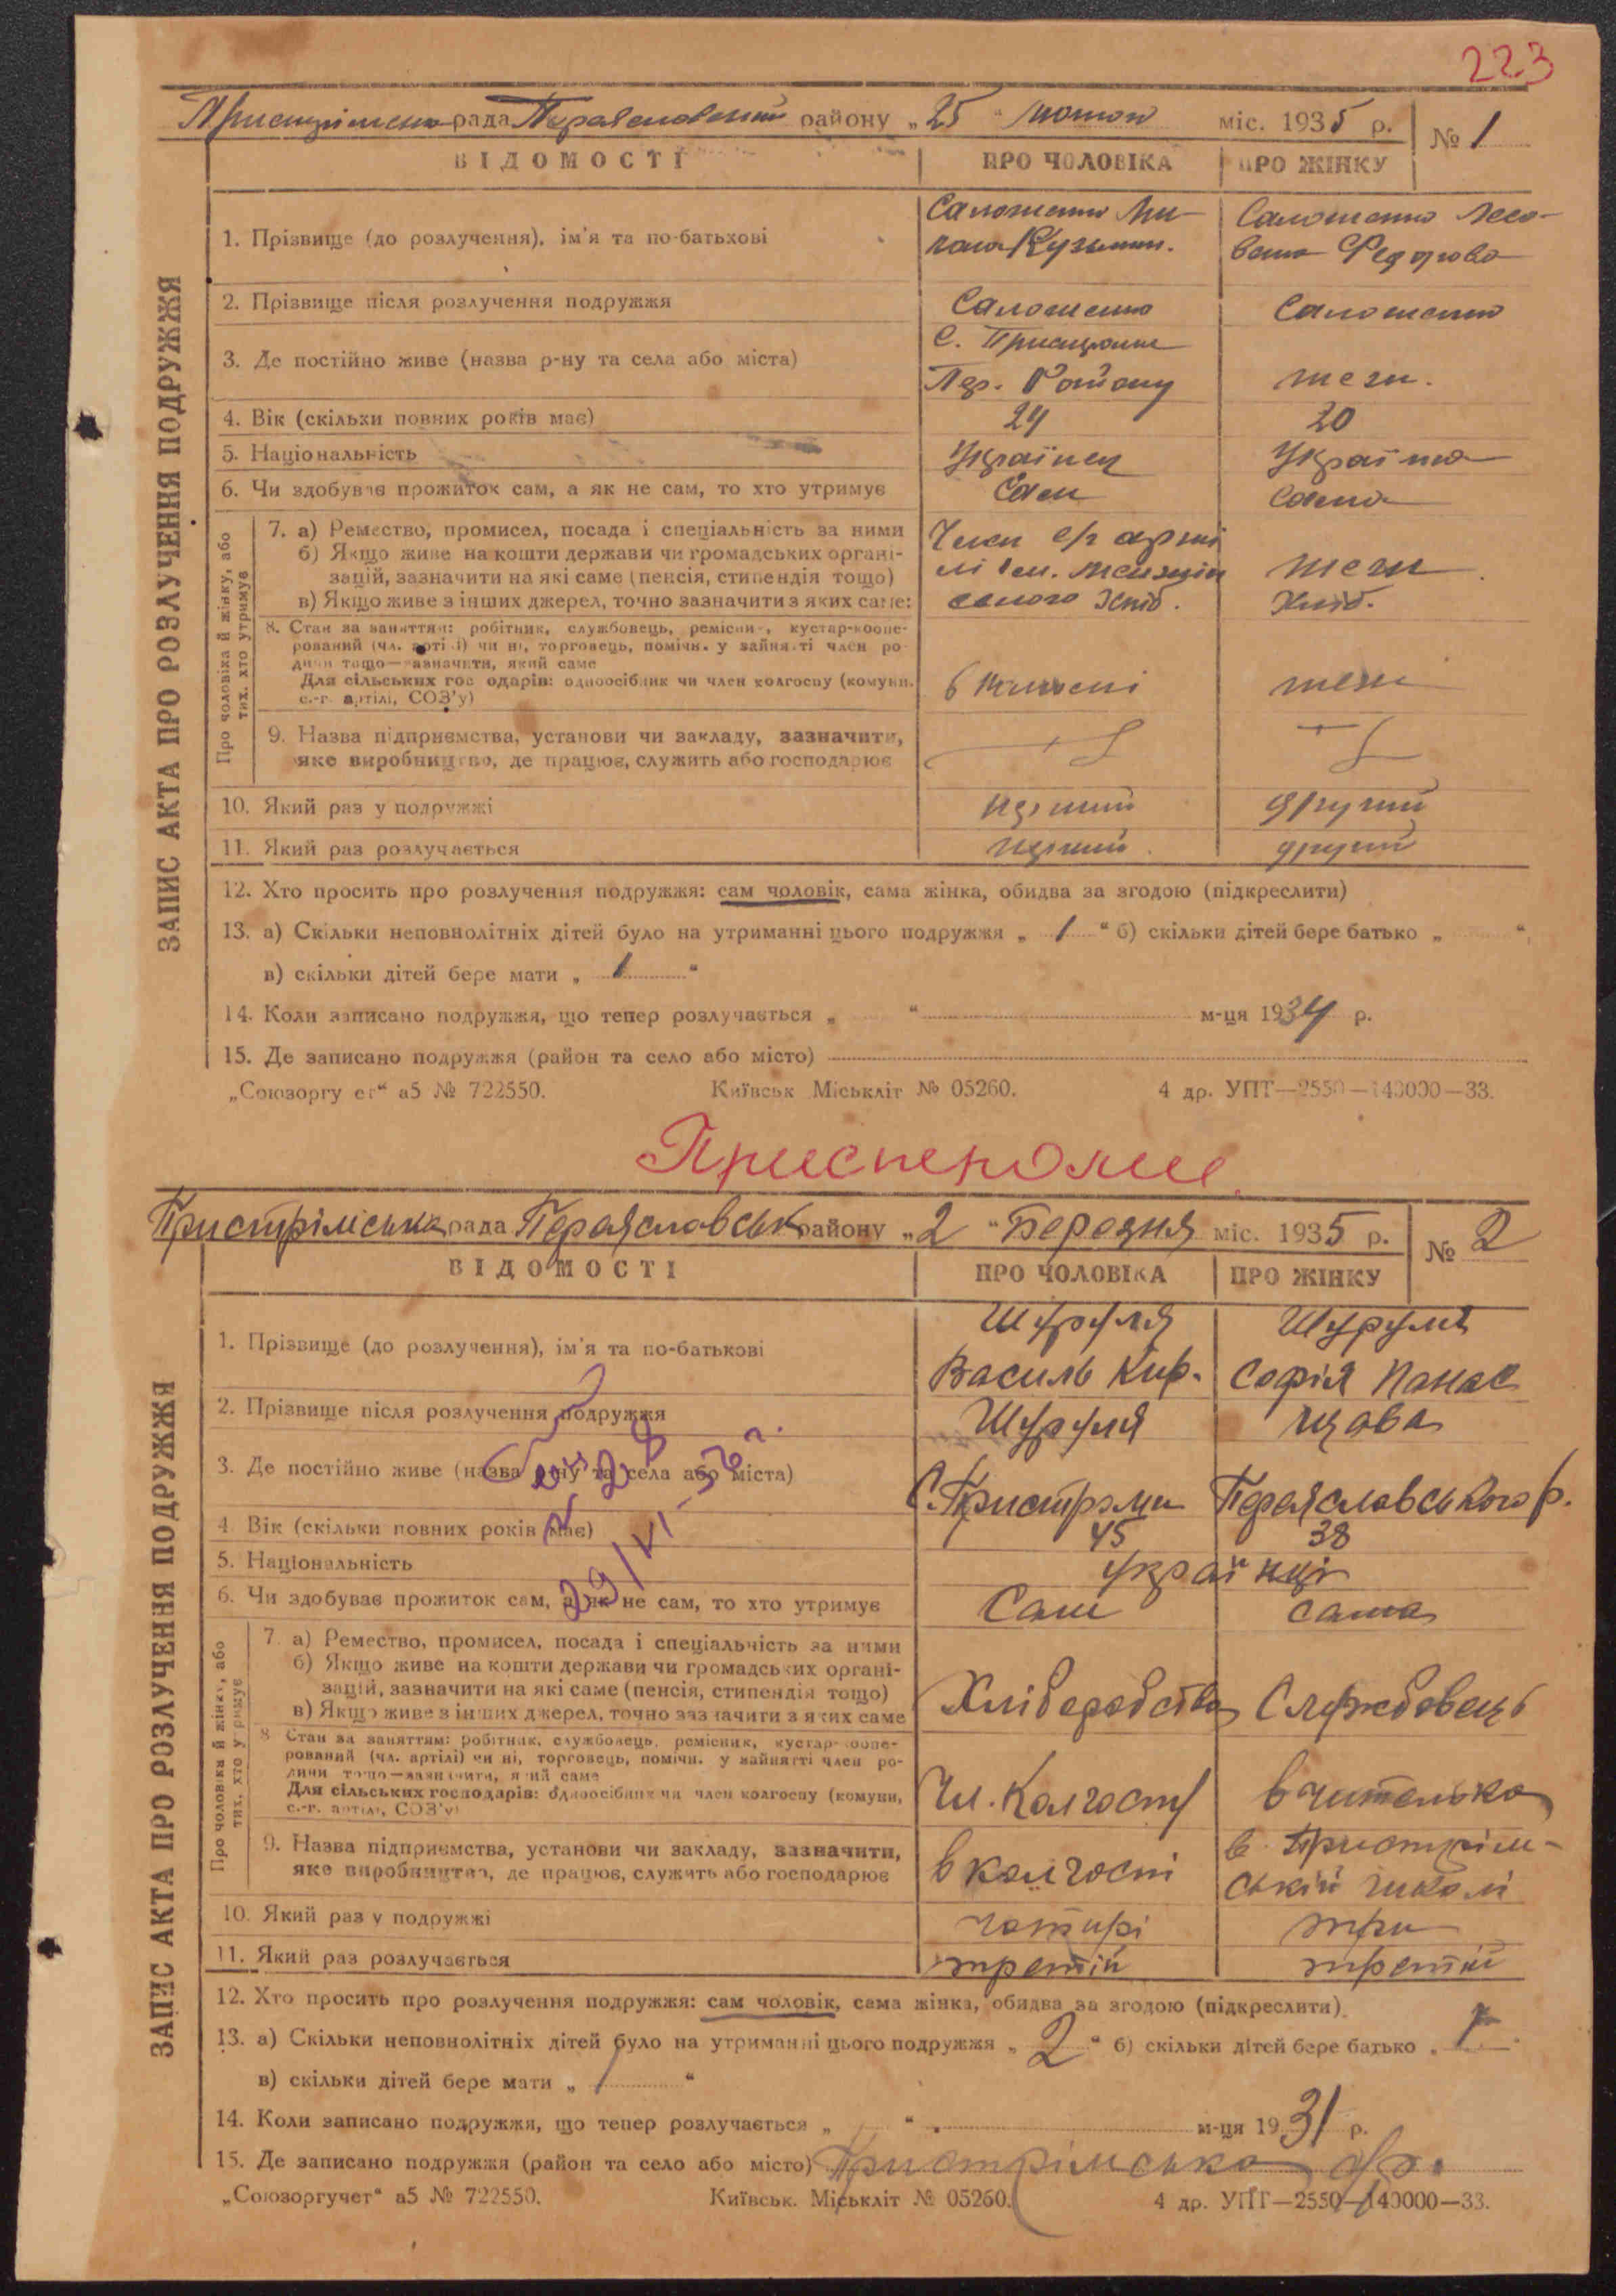 223
рада Переяславський району „25“ лютого міс. 1935 р. № 1
ВІДОМОСТІ ПРО ЧОЛОВІКА ПРО ЖІНКУ
ЗАПИС АКТА ПРО РОЗЛУЧЕННЯ ПОДРУЖЖЯ
1. Прізвище (до розлучення), ім'я та по-батькові
2. Прізвище після розлучення подружжя
3. Де постійно живе (назва р-ну та села або міста) с.
4. Вік (скільки повних років має) 24 20
5. Національність Українец Українка
6. Чи здобуває прожиток сам, а як не сам, то хто утримує Сам Сама
Про чоловіка й жінку, або тих, хто утримує
7. а) Ремество, промисел, посада і спеціальність за ними
б) Якщо живе на кошти держави чи громадських органі-
зацій, зазначити на які саме (пенсія, стипендія тощо)
в) Якщо живе з інших джерел, точно зазначити з яких саме:
8. Стан за заняттям: робітник, службовець, ремісник, кустар-коопе-
рований (чл. артілі) чи ні, торговець, помічн. у зайнятті член ро-
дини тощо—зазначити, який саме
Для сільських господарів: одноосібник чи член колгоспу (комуни,
с.-г. артілі, СОЗ'у)
9. Назва підприємства, установи чи закладу, зазначити,
яке виробництво, де працює, служить або господарює
10. Який раз у подружжі перший другий
11. Який раз розлучається перший другий
12. Хто просить про розлучення подружжя: сам чоловік, сама жінка, обидва за згодою (підкреслити)
13. а) Скільки неповнолітніх дітей було на утриманні цього подружжя „ 1 “ б) скільки дітей бере батько „ “,
в) скільки дітей бере мати „ 1 “
14. Коли записано подружжя, що тепер розлучається „ “ м-ця 1934 р.
15. Де записано подружжя (район та село або місто)
„Союзоргучет“ а5 № 722550. Київськ Міськліт № 05260. 4 др. УПТ—2550—140000—33.
Пристрімська рада Переяславськ району „2“ Березня міс. 1935 р. № 2
ВІДОМОСТІ ПРО ЧОЛОВІКА ПРО ЖІНКУ
ЗАПИС АКТА ПРО РОЗЛУЧЕННЯ ПОДРУЖЖЯ
1. Прізвище (до розлучення), ім'я та по-батькові Шуруля Василь Кир. Шуруля Софія Панас
2. Прізвище після розлучення подружжя Шуруля
3. Де постійно живе (назва р-ну та села або міста) С. Пристроми Переяславського р.
29/VI-36 г.
4. Вік (скільки повних років має) 45 38
5. Національність українці
6. Чи здобуває прожиток сам, а як не сам, то хто утримує Сам сама
Про чоловіка й жінку, або тих, хто утримує
7. а) Ремество, промисел, посада і спеціальність за ними
б) Якщо живе на кошти держави чи громадських органі-
зацій, зазначити на які саме (пенсія, стипендія тощо)
в) Якщо живе з інших джерел, точно зазначити з яких саме
Хліборобство Службовець
8. Стан за заняттям: робітник, службовець, ремісник, кустар-коопе-
рований (чл. артілі) чи ні, торговець, помічн. у зайнятті член ро-
дини тощо—зазначити, який саме
Для сільських господарів: одноосібник чи член колгоспу (комуни,
с.-г. артілі, СОЗ'у)
Чл. Колгоспу вчителька
9. Назва підприємства, установи чи закладу, зазначити,
яке виробництво, де працює, служить або господарює
в колгоспі в Пристрім-
ській школі
10. Який раз у подружжі чотирі три
11. Який раз розлучається третій третій
12. Хто просить про розлучення подружжя: сам чоловік, сама жінка, обидва за згодою (підкреслити).
13. а) Скільки неповнолітніх дітей було на утриманні цього подружжя „ 2 “ б) скільки дітей бере батько „ 1 “
в) скільки дітей бере мати „ 1 “
14. Коли записано подружжя, що тепер розлучається „ “ м-ця 1931 р.
15. Де записано подружжя (район та село або місто) Пристрімська с/р.
„Союзоргучет“ а5 № 722550. Київськ. Міськліт № 05260. 4 др. УПТ—2550—140000—33.